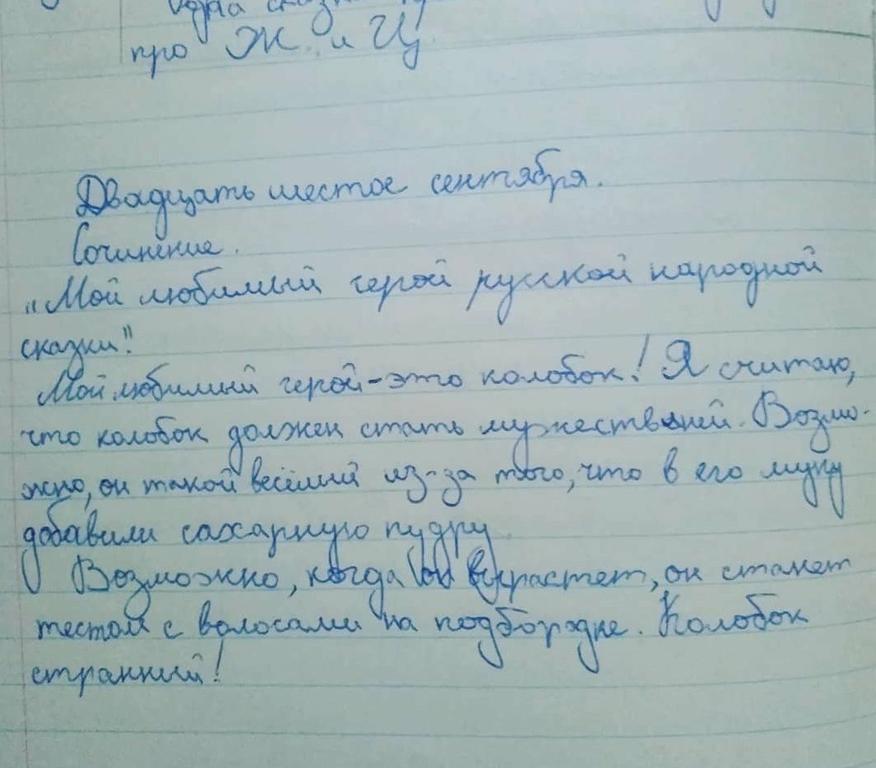 сказ
про Ж и Ц
Двадцать шестое сентября.
Сочинение.
„Мой любимый герой русской народной
сказки"
Мой любимый герой - это колобок! Я считаю,
что колобок должен стать мужественей. Возмо-
жно, он такой весёлый из-за того, что в его муку
добавили сахарную пудру
Возможно, когда он вырастет, он станет
тестом с волосами на подбородке. Колобок
странный!